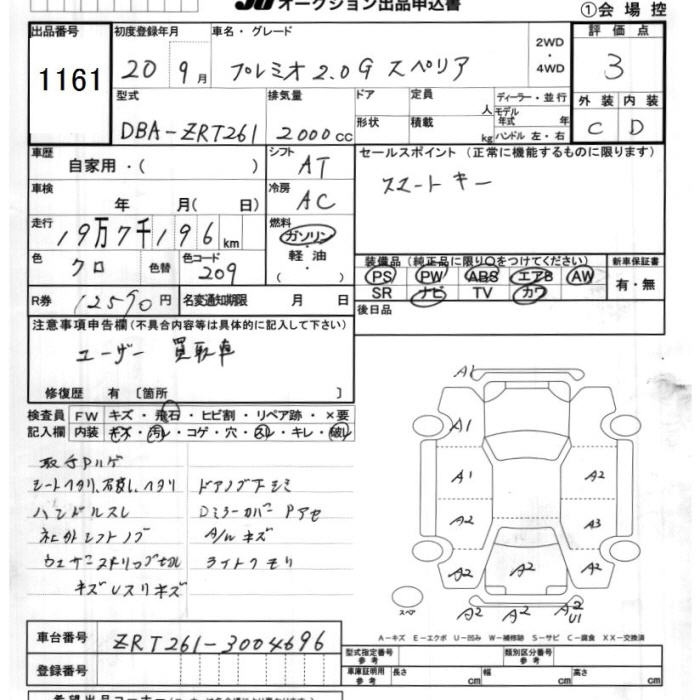 JU オークション出品申込書
①会場控
出品番号 1161
初度登録年月 20 9月
車名・グレード プレミオ2.0G スペリア
2WD・4WD
評価点 3
型式 DBA-ZRT261
排気量 2000cc
ドア 形状
定員 人 積載 kg
ディーラー・並行
モデル年式 年
ハンドル 左・右
外装 内装
C D
車歴 自家用・( )
シフト AT
セールスポイント(正常に機能するものに限ります)
スマートキー
車検 年 月( 日)
冷房 AC
走行 19万7千196km
燃料 ガソリン・軽油・( )
色 クロ 色替 色コード 209
装備品(純正品に限り○をつけてください) 新車保証書
PS PW ABS エアB AW 有・無
SR ナビ TV カワ
R券 12590円 名変通知期限 月 日
後日品
注意事項申告欄(不具合内容等は具体的に記入して下さい)
ユーザー買取車
修復歴 有 〔箇所 〕
検査員 FW キズ・飛石・ヒビ割・リペア跡・×要
記入欄 内装 キズ・汚レ・コゲ・穴・スレ・キレ・破レ
シートヘタリ、
ハンドルスレ
ドアノブ下シミ
Dミラーカバー Pアセ
A/Wキズ
ライトクモリ
A1
A1
A1 A2
A2 A3
A2 A2 A2
A2 A2 A2
U1
スペア
A-キズ E-エクボ U-凹み W-補修跡 S-サビ C-腐食 XX-交換済
車台番号 ZRT261-3004696
型式指定番号 参考 類別区分番号 参考
登録番号
車庫証明用 参考 長さ cm 幅 cm 高さ cm